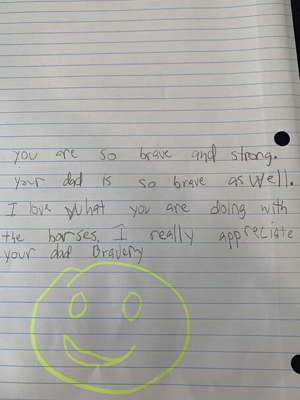 you are so brave and strong.
Your dad is so brave as well.
I love what you are doing with
the horses. I really appreciate
your dad Bravery